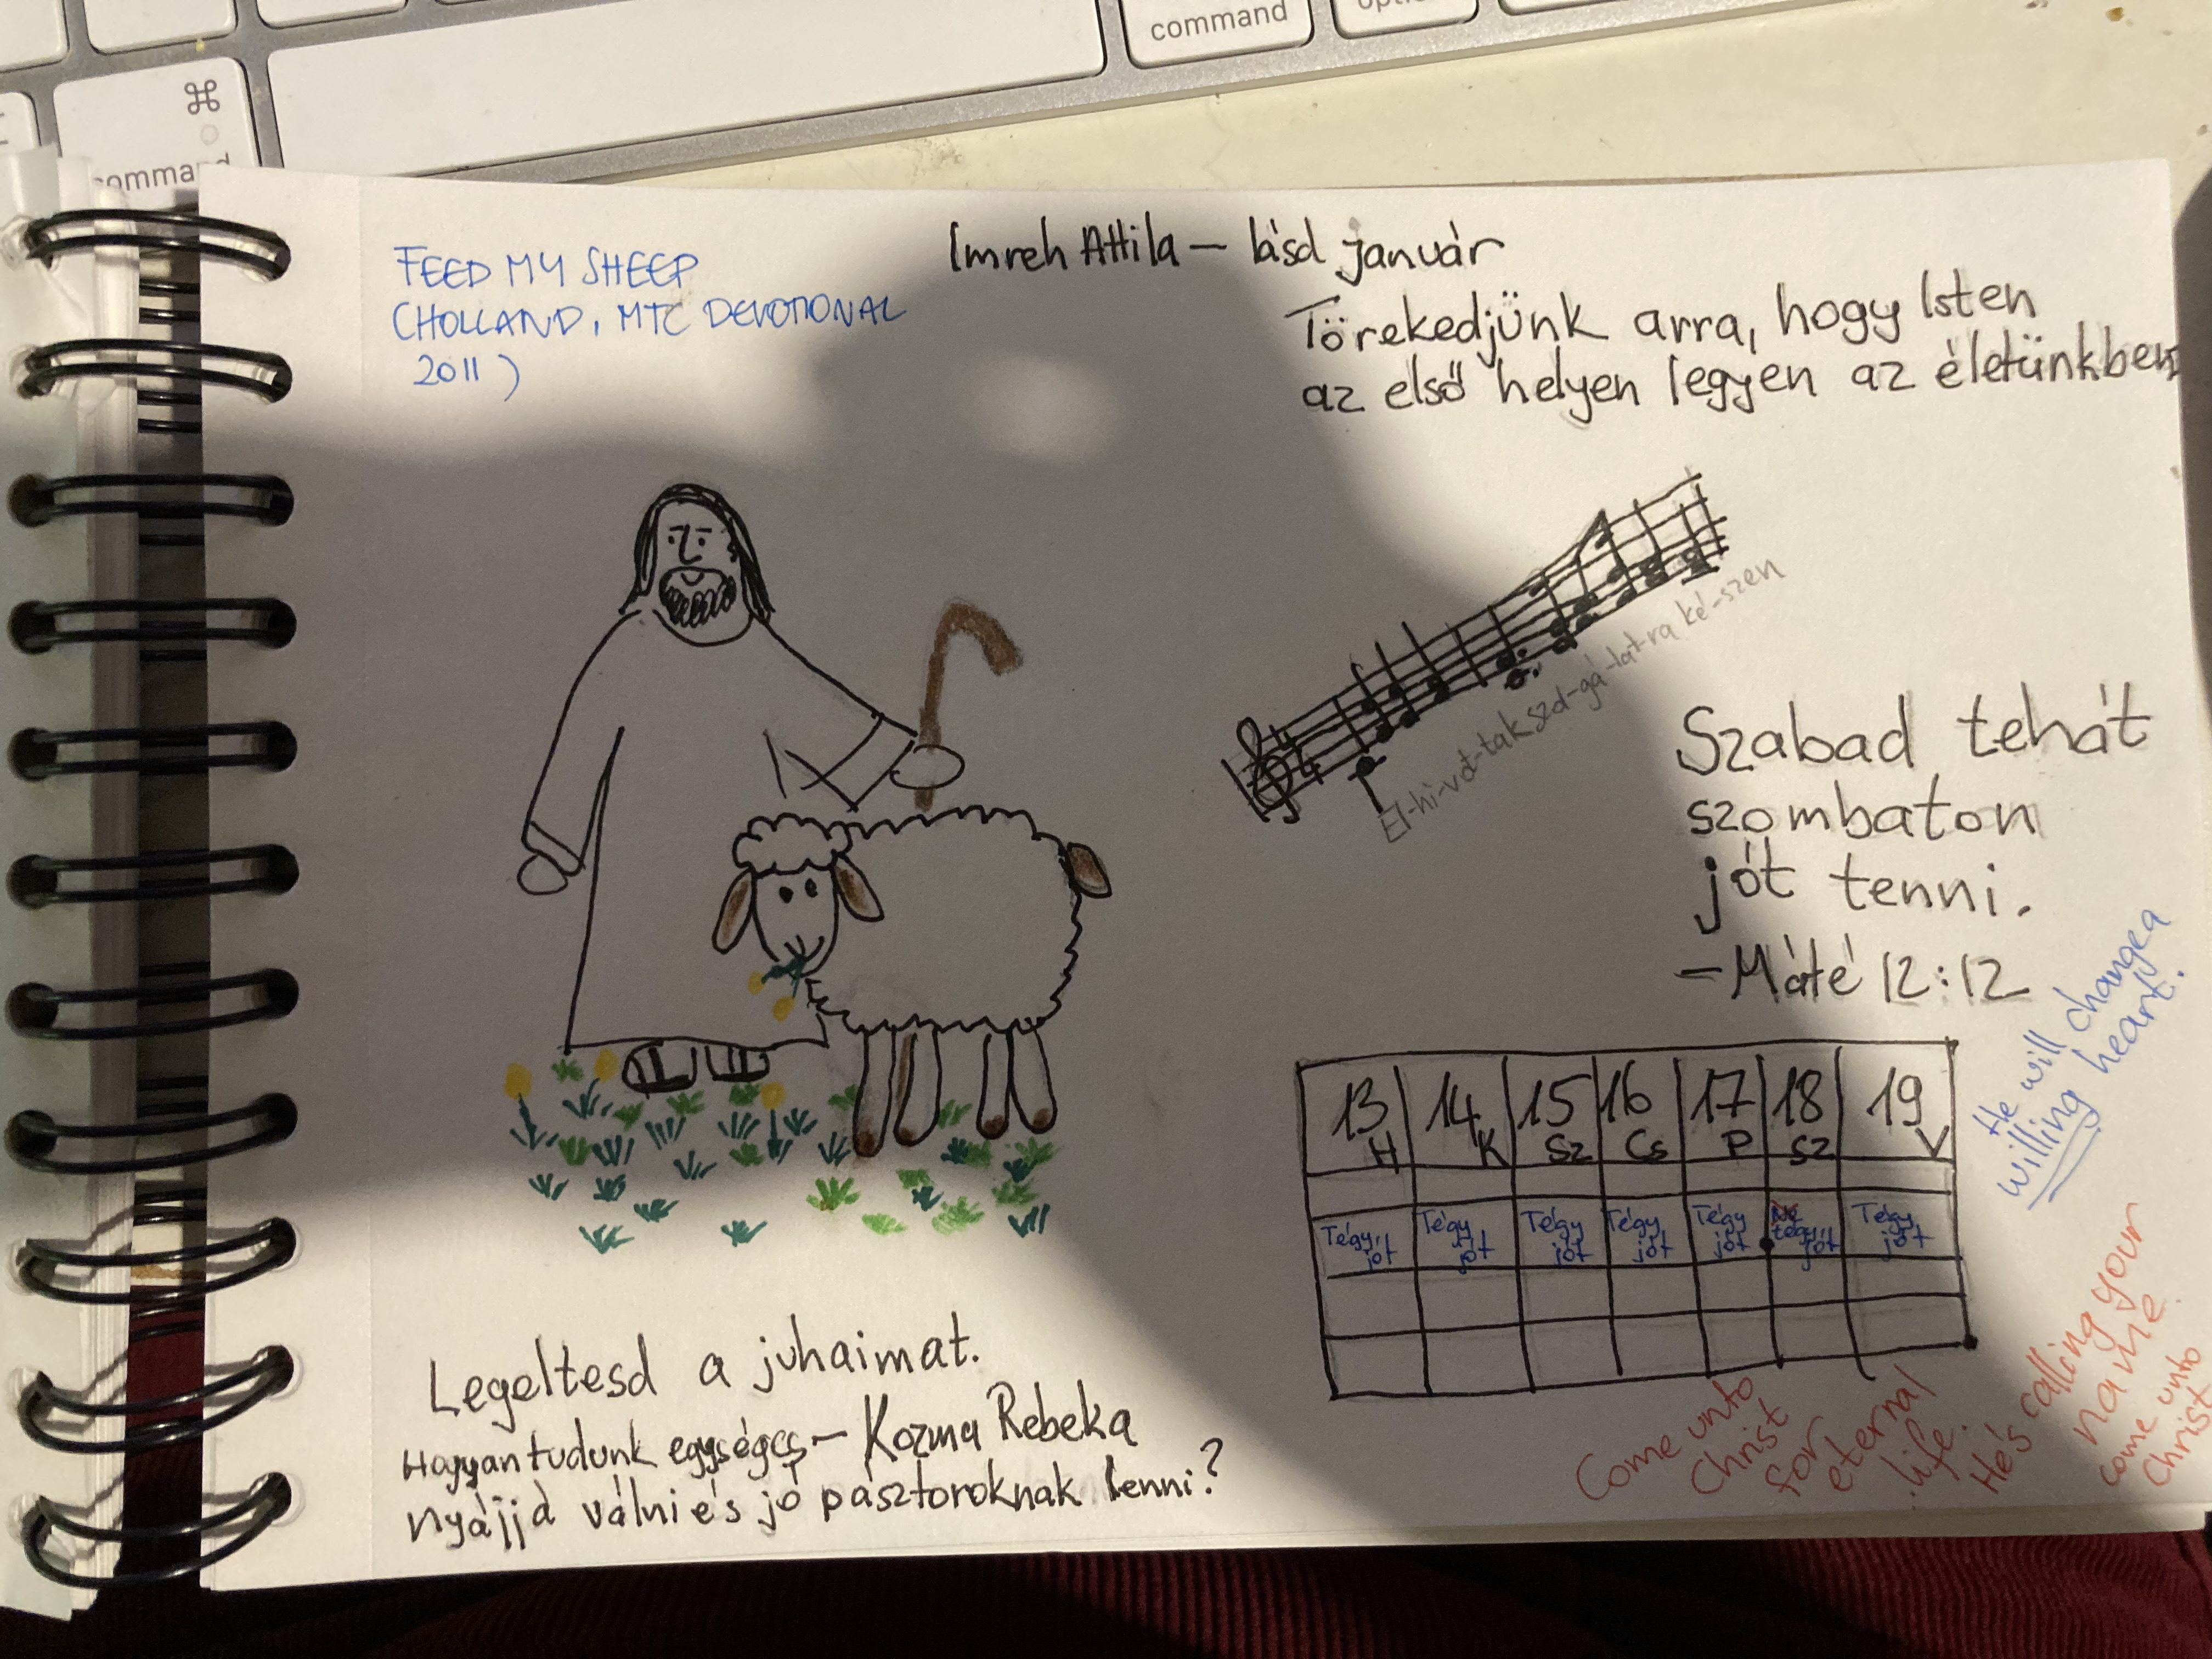 command
option
⌘
command
FEED MY SHEEP
(HOLLAND, MTC DEVOTIONAL
2011)
Imreh Attila – lásd január
Törekedjünk arra, hogy Isten
az első helyen legyen az életünkben
El-hi-vot-tak szol-gá-lat-ra ké-szen
Szabad tehát
szombaton
jót tenni.
– Máté 12:12
He will change a
willing heart.
13 14 15 16 17 18 19
H K Sz Cs P Sz V
Tégy jót Tégy jót Tégy jót Tégy jót Tégy jót Ne tégy jót Tégy jót
Legeltesd a juhaimat.
Hogyan tudunk egységes – Kozma Rebeka
nyájjá válni és jó pásztoroknak lenni?
Come unto
Christ
for
eternal
life.
He's calling your
name
come unto
Christ